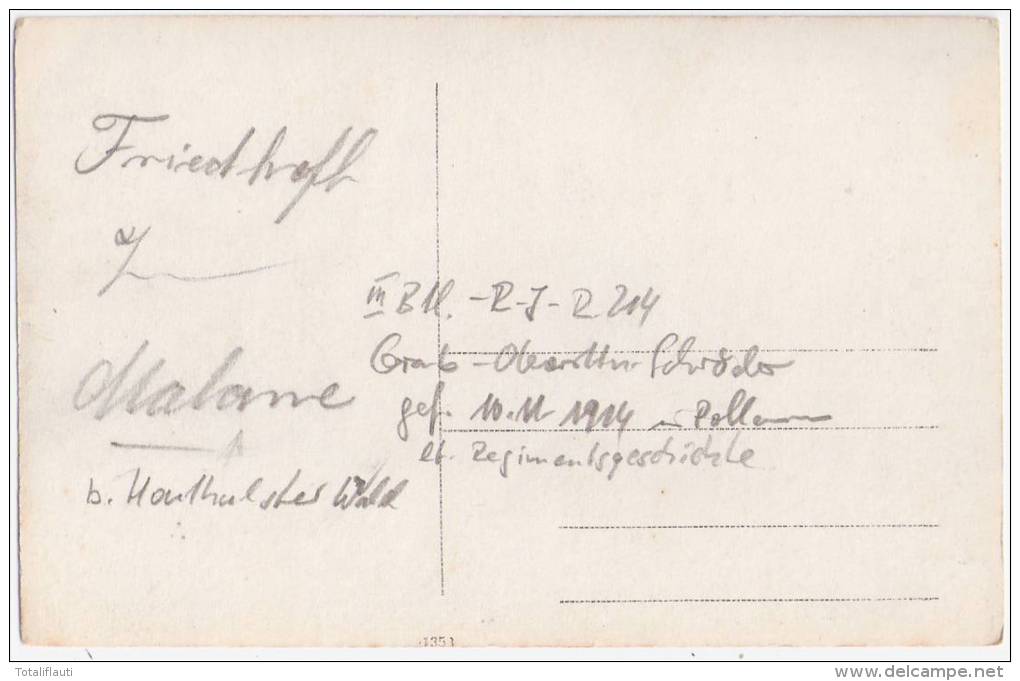 Friedhoff
In
Malanne
b. Houthulster Wald
III Btl. - R-J-R 214
Grab - Oberstltn. Schröder
gef. 10.11 1914 in
lt. Regimentsgeschichte
1353
Totaliflauti
www.delcampe.net